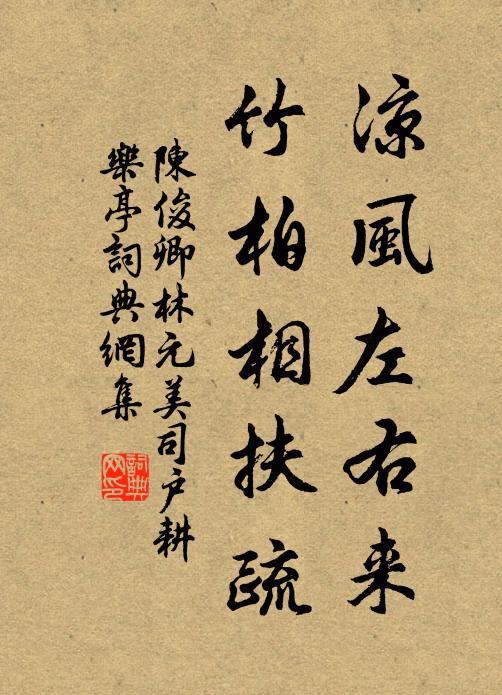 凉風左右来
竹柏相扶疏
陳俊卿林元美司户耕
樂亭詞典網集
詞典网印